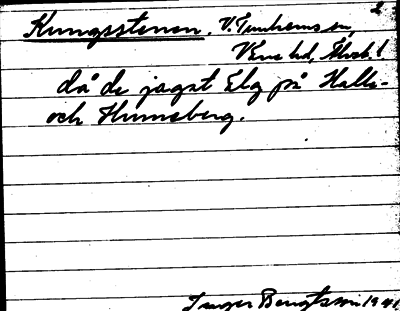 2
Kungsstenen. V. Tunhems sn,
Väne hd, Älvsb. l
då de jagat Elg på Halle-
och Hunneberg.
Inger Bengtsson 1941